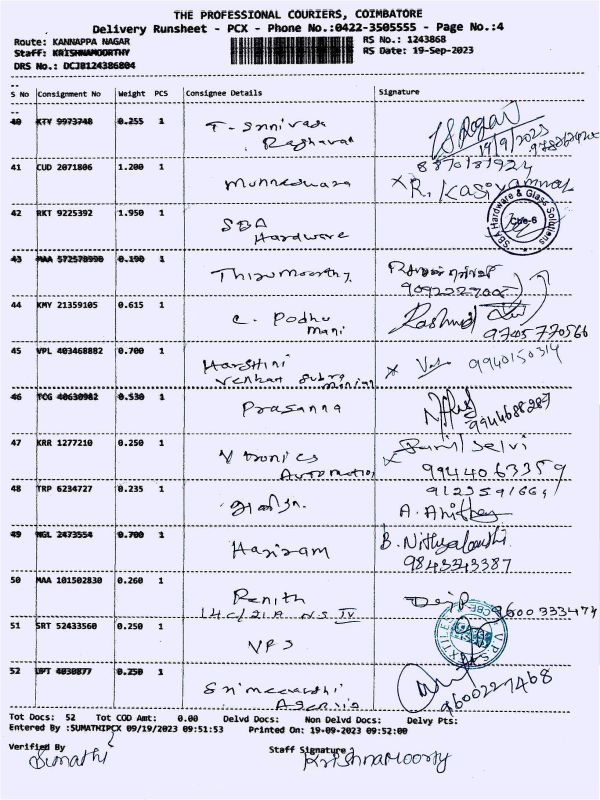 THE PROFESSIONAL COURIERS, COIMBATORE
Delivery Runsheet - PCX - Phone No.:0422-3505555 - Page No.:4
Route: KANNAPPA NAGAR RS No.: 1243868
Staff: KRISHNAMOORTHY RS Date: 19-Sep-2023
DRS No.: DCJ0124386804
S No Consignment No Weight PCS Consignee Details Signature
40 KTV 9973748 0.255 1 T- Srinivasa
Raghavan
19/9/2023
41 CUD 2071806 1.200 1 Muhneswara R. Kasiyammal
8870181924
42 RKT 9225392 1.950 1 SBA
Hardware
SBA Hardware & Glass Solutions
Cbe-6
43 MAA 572578990 0.190 1 Thirumoorthy
44 KMY 21359105 0.615 1 C. Podhu
mani
Rashmid
9745770566
45 VPL 403468882 0.700 1 Harshini
Venkat Subra
manian
9940150314
46 TCG 40630982 0.530 1 Prasanna
9944688289
47 KRR 1277210 0.250 1 V tronics
Automation
Selvi
9944063359
48 TRP 6234727 0.235 1
A. Anitha
49 NGL 2473554 0.700 1 Hariram
B. Nithyalakshmi
9843243387
50 MAA 101502830 0.260 1 Renith
14C/21A N.S IV
9600333474
51 SRT 52433560 0.250 1 VPS
V.P.S TEXTILES
CBE
52 UPT 4030877 0.250 1 Sri meenakshi
Agencies
9600227468
Tot Docs: 52 Tot COD Amt: 0.00 Delvd Docs: Non Delvd Docs: Delvy Pts:
Entered By :SUMATHIPCX 09/19/2023 09:51:53 Printed On: 19-09-2023 09:52:00
Verified By Staff Signature
Sumathi KrishnaMoorty